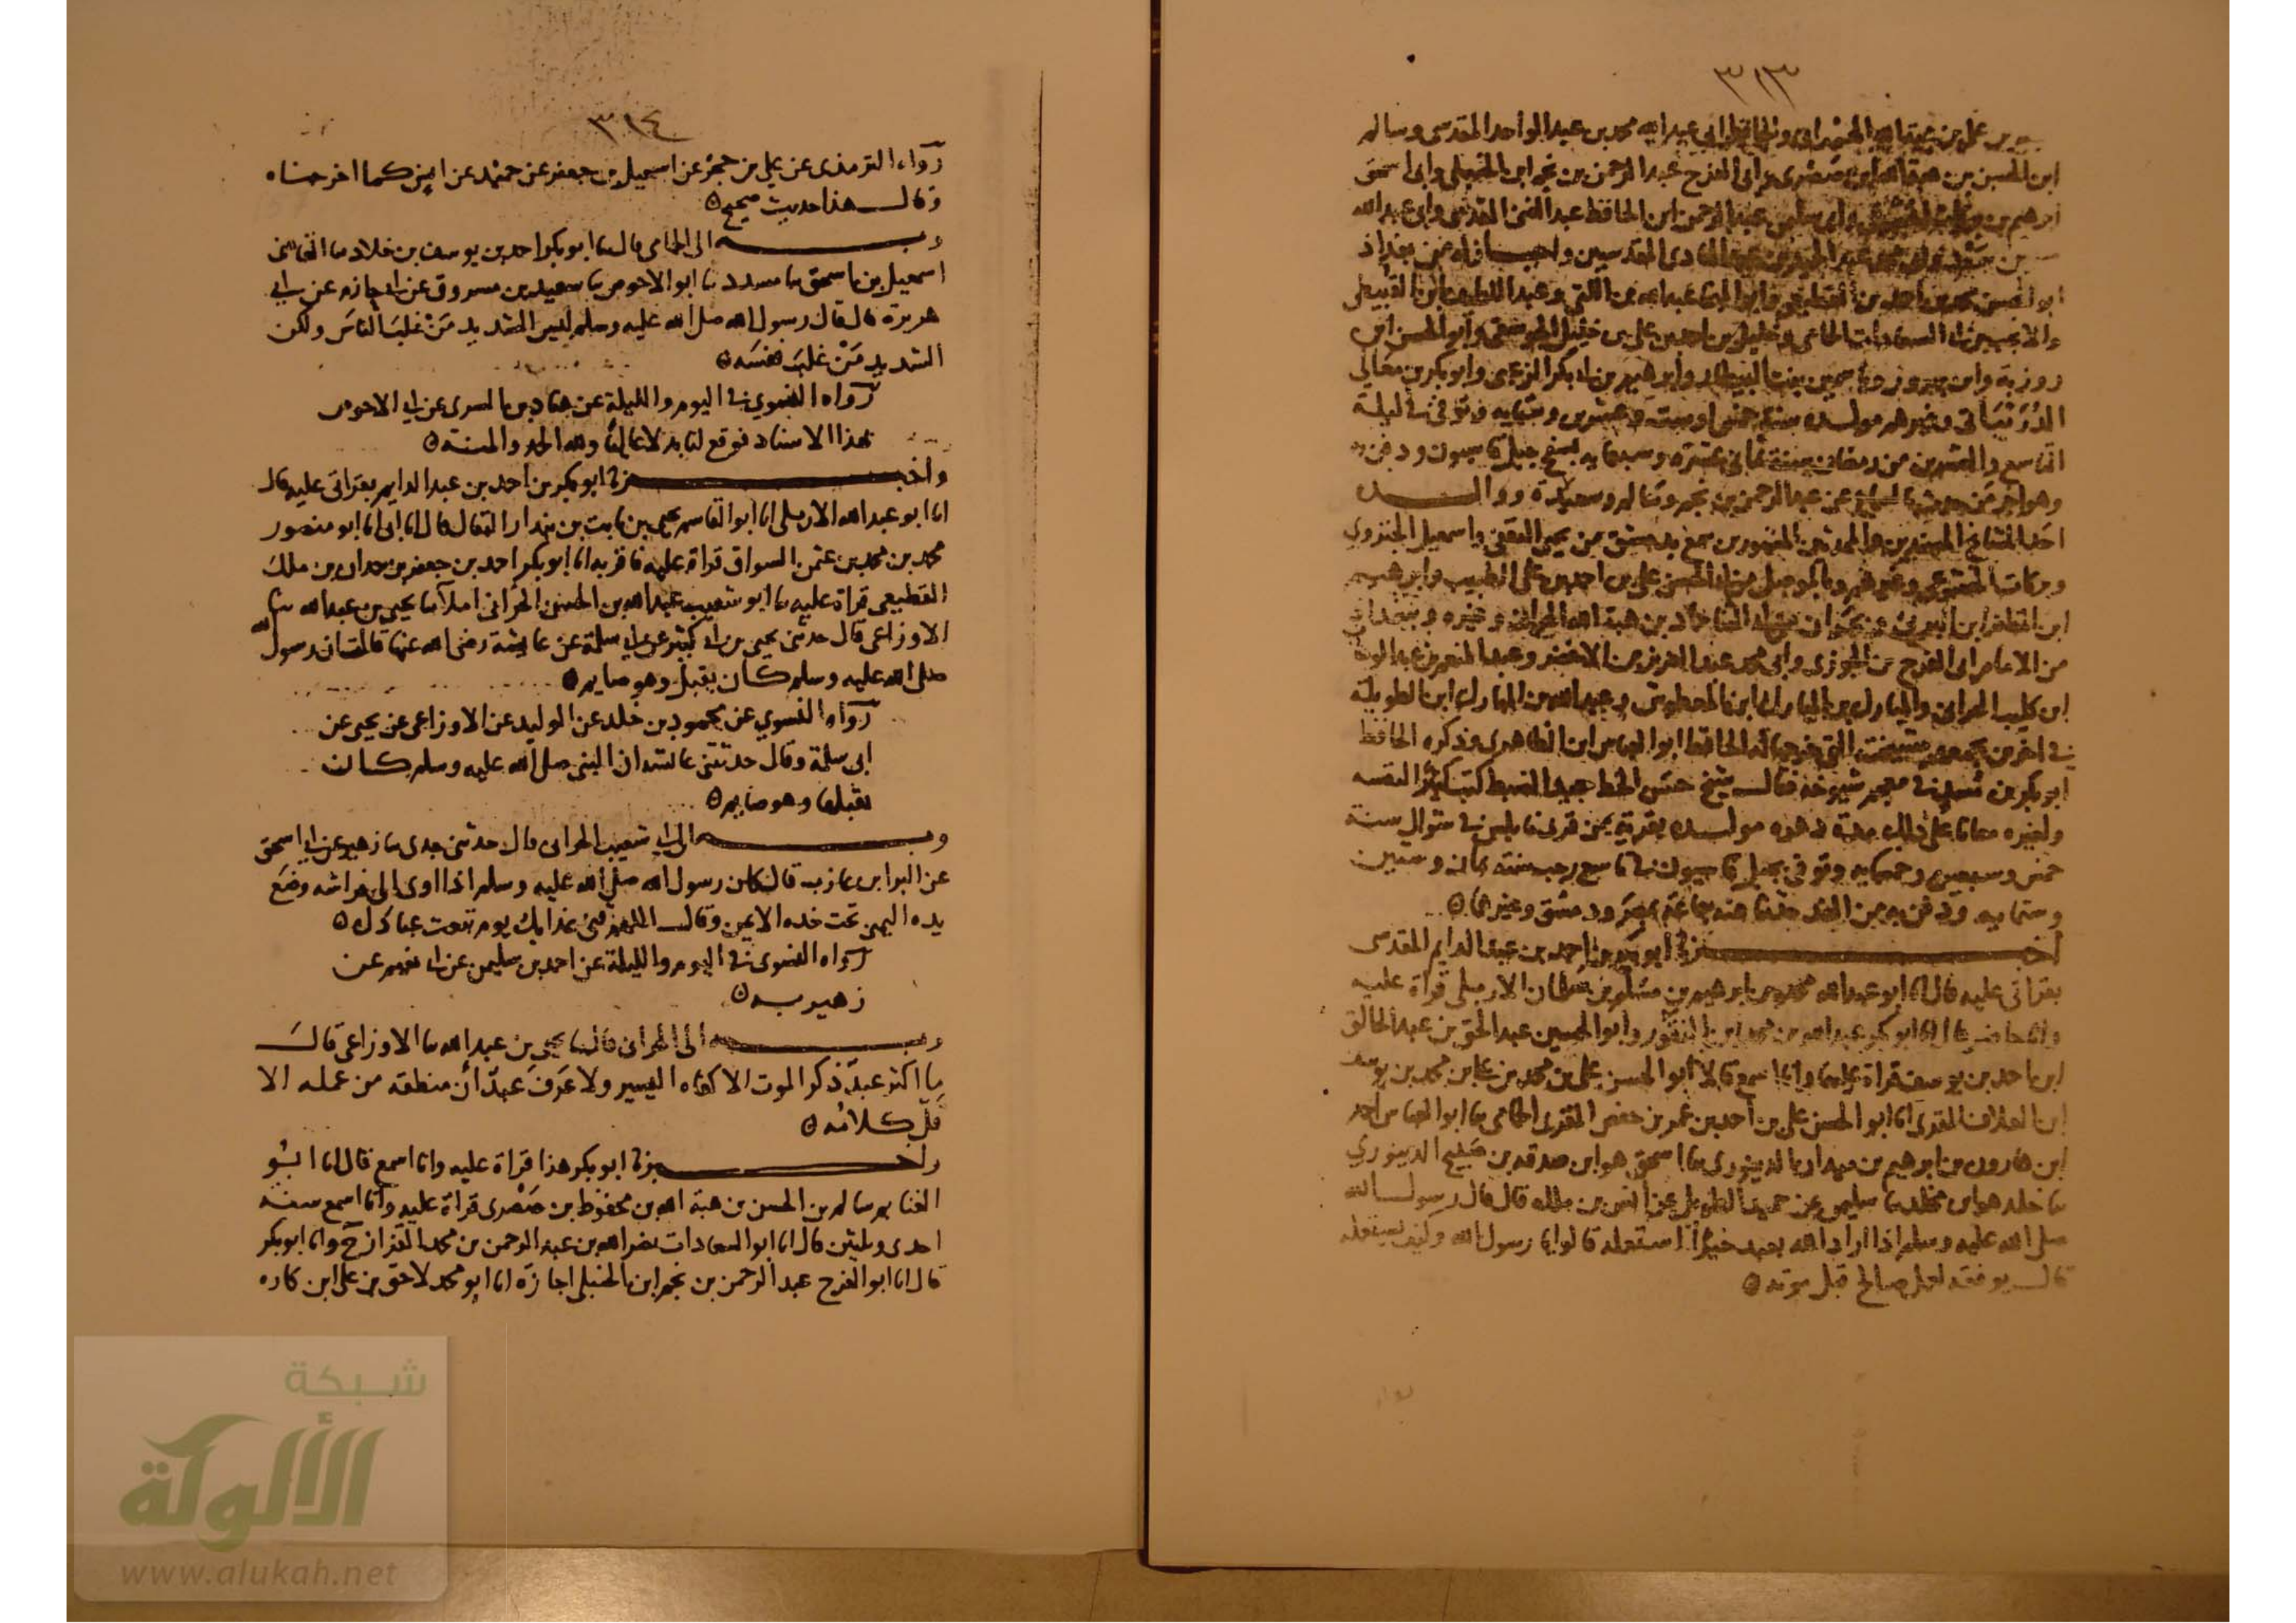 ٣١٣
بن عبد الواحد المقدسى وسالم
ابن الحسن بن هبة الله ابن صصرى وابى الفرج عبد الرحمن بن نجم ابن الحنبلى وابى اسحق
ابرهيم بن وابى سليمن عبد الرحمن ابن الحافظ عبد الغنى المقدسى وابى عبد الله
بن سعد عبد الهادى المقدسيين واجــــاز له من بغداذ
ابو الحسن محمد بن احمد بن القطيعى وابو المنجا عبد الله بن اللتى وعبد اللطيف ابن القبيطى
والانجب بن ابى السعادات الحمامى وخليل بن احمد بن على بن خليل الجوسقى وابو الحسن ابن
روزبة وابن بهروز وياسمين بنت البيطار وابرهيم بن ابى بكر الزعبى وابو بكر بن معالى
وغيرهم مولـــده سنة خمس او ست وعشرين وستمايه وتوفى فى ليلة
التاسع والعشرين من رمضان سنة ثمانى عشرة وسبعمايه بسفح جبل قاسيون ودفن به
وهو اخر من حدث بالسماع عن عبد الرحمن بن نجم وسالم ووالـــــده
احد المشايخ المسندين والمحدثين المشهورين سمع بدمشق من يحيى الثقفى واسمعيل الجنزوى
وبركات الخشوعى وغيرهم وبالموصل من ابى الحسن على بن احمد بن على الطبيب وابرهيم
ابن المظفر ابن البرنى وبحران من ابى الثنا حماد بن هبة الله الحرانى وغيره وببغداد
من الامام ابى الفرج بن الجوزى وابى محمد عبد العزيز بن الاخضر وعبد المنعم بن عبد الوهاب
ابن كليب الحرانى والمبارك بن المبارك ابن المعطوش وعبد الله بن المبارك ابن الطويلة
فى اخرين يجمعهم مشيخته التى خرجها له الحافظ ابو العباس ابن الظاهرى وذكره الحافظ
ابو بكر بن مسدى فى معجم شيوخه فقالـــ شيخ حسن الخط جيد الضبط كتب كثيرا لنفسه
ولغيره معانا على ذلك مولـــده بقرية من قرى نابلس فى شوال سنة
خمس وسبعين وخمسمايه وتوفى بجبل قاسيون فى تاسع رجب سنة ثمان وستين
وستمايه ودفن به من الغد حدثنا عنه جماعة بمصر ودمشق وغيرهما ه
اخبـــــــــرنا ابو بكر بن احمد بن عبد الدايم المقدسى
بقراتى عليه قال انا ابو عبد الله محمد بن ابرهيم بن مسلم بن سلمان الاربلى قراة عليه
وانا حاضر قال انا ابو بكر عبد الله بن محمد ابن النقور وابو الحسين عبد الحق بن عبد الخالق
ابن احمد بن يوسف قراة عليهما وانا اسمع قالا انا ابو الحسن على بن محمد بن على بن محمد بن يوسف
ابن العلاف المقرى انا ابو الحسن على بن احمد بن عمر بن حفص المقرى الحمامى نا ابو العباس احمد
ابن هارون بن ابرهيم بن مهران الدينورى نا اسحق هو ابن صدقه بن صبيح الدينورى
نا خلد هو ابن مخلد نا سليمن عن حميد الطويل عن انس بن ملك قال قال رسول الله
صلى الله عليه وسلم اذا اراد الله بعبد خيرا استعمله قالوا يا رسول الله وكيف يستعمله
قالـــ يوفقه لعمل صالح قبل موته ه
٣١٤
رواه الترمذى عن على بن حجر عن اسمعيل بن جعفر عن حميد عن انس كما اخرجناه
وقالـــ هذا حديث صحيح ه
وبـــــــــه الى الحمامى قال نا ابو بكر احمد بن يوسف بن خلاد نا القاضى
اسمعيل بن اسحق نا مسدد نا ابو الاحوص نا سعيد بن مسروق عن ابى حازم عن ابى
هريرة قال قال رسول الله صلى الله عليه وسلم ليس الشديد من غلب الناس ولكن
الشديد من غلب نفسه ه
رواه النسوى فى اليوم والليلة عن هناد بن السرى عن ابى الاحوص
بهذا الاسناد فوقع لنا بدلا عاليا ولله الحمد والمنة ه
واخبـــــــــرنا ابو بكر بن احمد بن عبد الدايم بقراتى عليه قال
انا ابو عبد الله الاربلى انا ابو القاسم يحيى بن ثابت بن بندار البقال قال انا ابى انا ابو منصور
محمد بن محمد بن عثمن السواق قراة عليه فاقر به انا ابو بكر احمد بن جعفر بن حمدان بن ملك
القطيعى قراة عليه نا ابو شعيب عبد الله بن الحسن الحرانى املآ نا يحيى بن عبد الله نا
الاوزاعى قال حدثنى يحيى بن ابى كثير عن ابى سلمة عن عايشة رضى الله عنها قالت ان رسول الله
صلى الله عليه وسلم كان يقبل وهو صايم ه
رواه النسوى عن محمود بن خلد عن الوليد عن الاوزاعى عن يحيى عن
ابى سلمة وقال حدثتنى عايشة ان النبى صلى الله عليه وسلم كان
يقبلها وهو صايم ه
وبـــــــــه الى ابى شعيب الحرانى قال حدثنى جدى نا زهير عن ابى اسحق
عن البرا بن عازب قال كان رسول الله صلى الله عليه وسلم اذا اوى الى فراشه وضع
يده اليمنى تحت خده الايمن وقالـــ اللهم قنى عذابك يوم تبعث عبادك ه
رواه النسوى فى اليوم والليلة عن احمد بن سليمن عن ابى نعيم عن
زهير بــه ه
وبـــــــــه الى الحرانى قال نا يحيى بن عبد الله نا الاوزاعى قالـــ
ما اكثر عبد ذكر الموت الا كفاه اليسير ولا عرف عبد ان منطقه من عمله الا
قل كلامه ه
واخبـــــــــرنا ابو بكر هذا قراة عليه وانا اسمع قال انا ابو
الغنايم سالم بن الحسن بن هبة الله بن محفوظ بن صصرى قراة عليه وانا اسمع سنه
احدى وثلثين قال انا ابو السعادات نصر الله بن عبد الرحمن بن محمد القزاز ح وانا ابو بكر
قال انا ابو الفرج عبد الرحمن بن نجم ابن الحنبلى اجازه انا ابو محمد لاحق بن على ابن كاره
شبكة
الألوكة
www.alukah.net